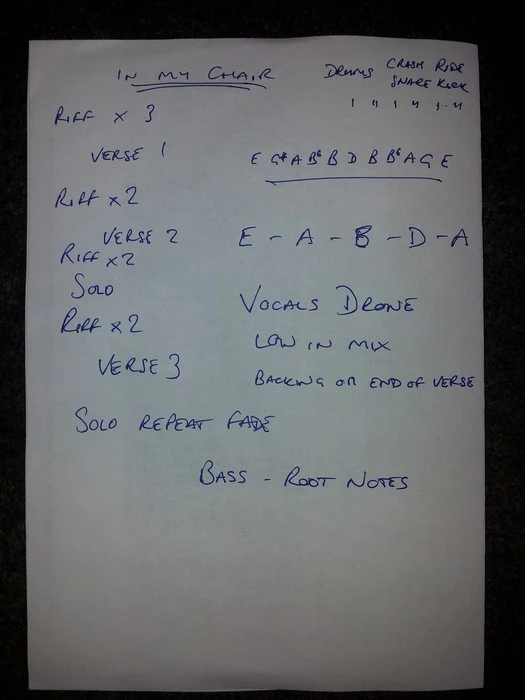 IN MY CHAIR
DRUMS CRASH RIDE
SNARE KICK
RIFF x 3
VERSE 1
E G# A Bb B D B Bb A G E
RIFF x 2
VERSE 2
E - A - B - D - A
RIFF x 2
SOLO
VOCALS DRONE
RIFF x 2
LOW IN MIX
VERSE 3
BACKING ON END OF VERSE
SOLO REPEAT FADE
BASS - ROOT NOTES